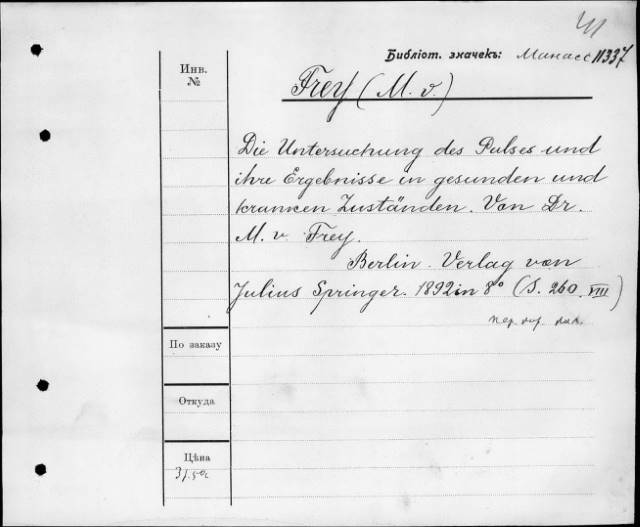 Библіот. значекъ: Минасс 11337
Инв.
№
Frey (M. v.)
Die Untersuchung des Pulses und
ihre Ergebnisse in gesunden und
kranken Zuständen. Von Dr.
M. v. Frey.
Berlin. Verlag von
Julius Springer. 1892 in 8° (S. 260. VIII)
По заказу
Откуда
Цѣна